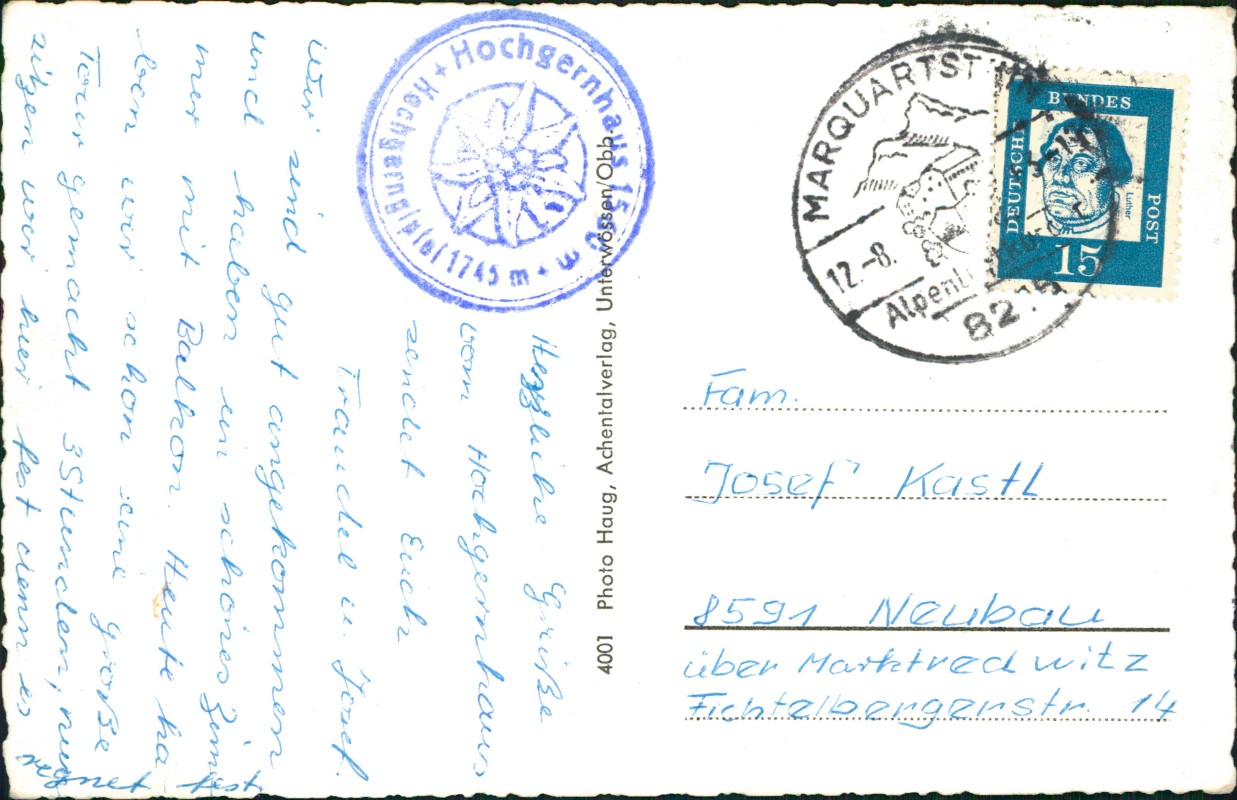 Herzliche Grüße
vom Hochgernhaus
sendet Euch
Traudel u. Josef.
Wir sind gut angekommen
und haben ein schönes Zim
mer mit Balkon. Heute ha
ben wir schon eine große
Tour gemacht 3 Stunden, nun
sitzen wir hier fest denn es
regnet fest.
+ Hochgernhaus 15 m
Hochgerngipfel 1745 m +
4001 Photo Haug, Achentalverlag, Unterwössen/Obb.
MARQUARTST
12.-8.
82
DEUTSCHE
BUNDES
POST
Luther
15
Fam.
Josef Kastl
8591 Neubau
über Marktredwitz
Fichtelbergerstr. 14